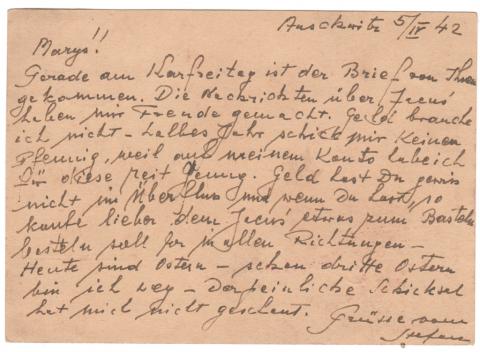 Auschwitz 5/IV 42
Marys!!
Gerade am Karfreitag ist der Brief von Ihnen
gekommen. Die Nachrichten über Jecus'
haben mir Freude gemacht. Geld brauche
ich nicht – halbes Jahr schick mir keinen
Pfennig, weil auf meinem Konto habe ich
für diese Zeit genug. Geld hast Du gewis
nicht im Überfluss und wenn Du hast, so
kaufe lieber dem Jecus' etwas zum Basteln
basteln soll er in allen Richtungen –
Heute sind Ostern – schon dritte Ostern
bin ich weg – Der peinliche Schicksel
hat mich nicht geschont. Grüsse vom
Stefan